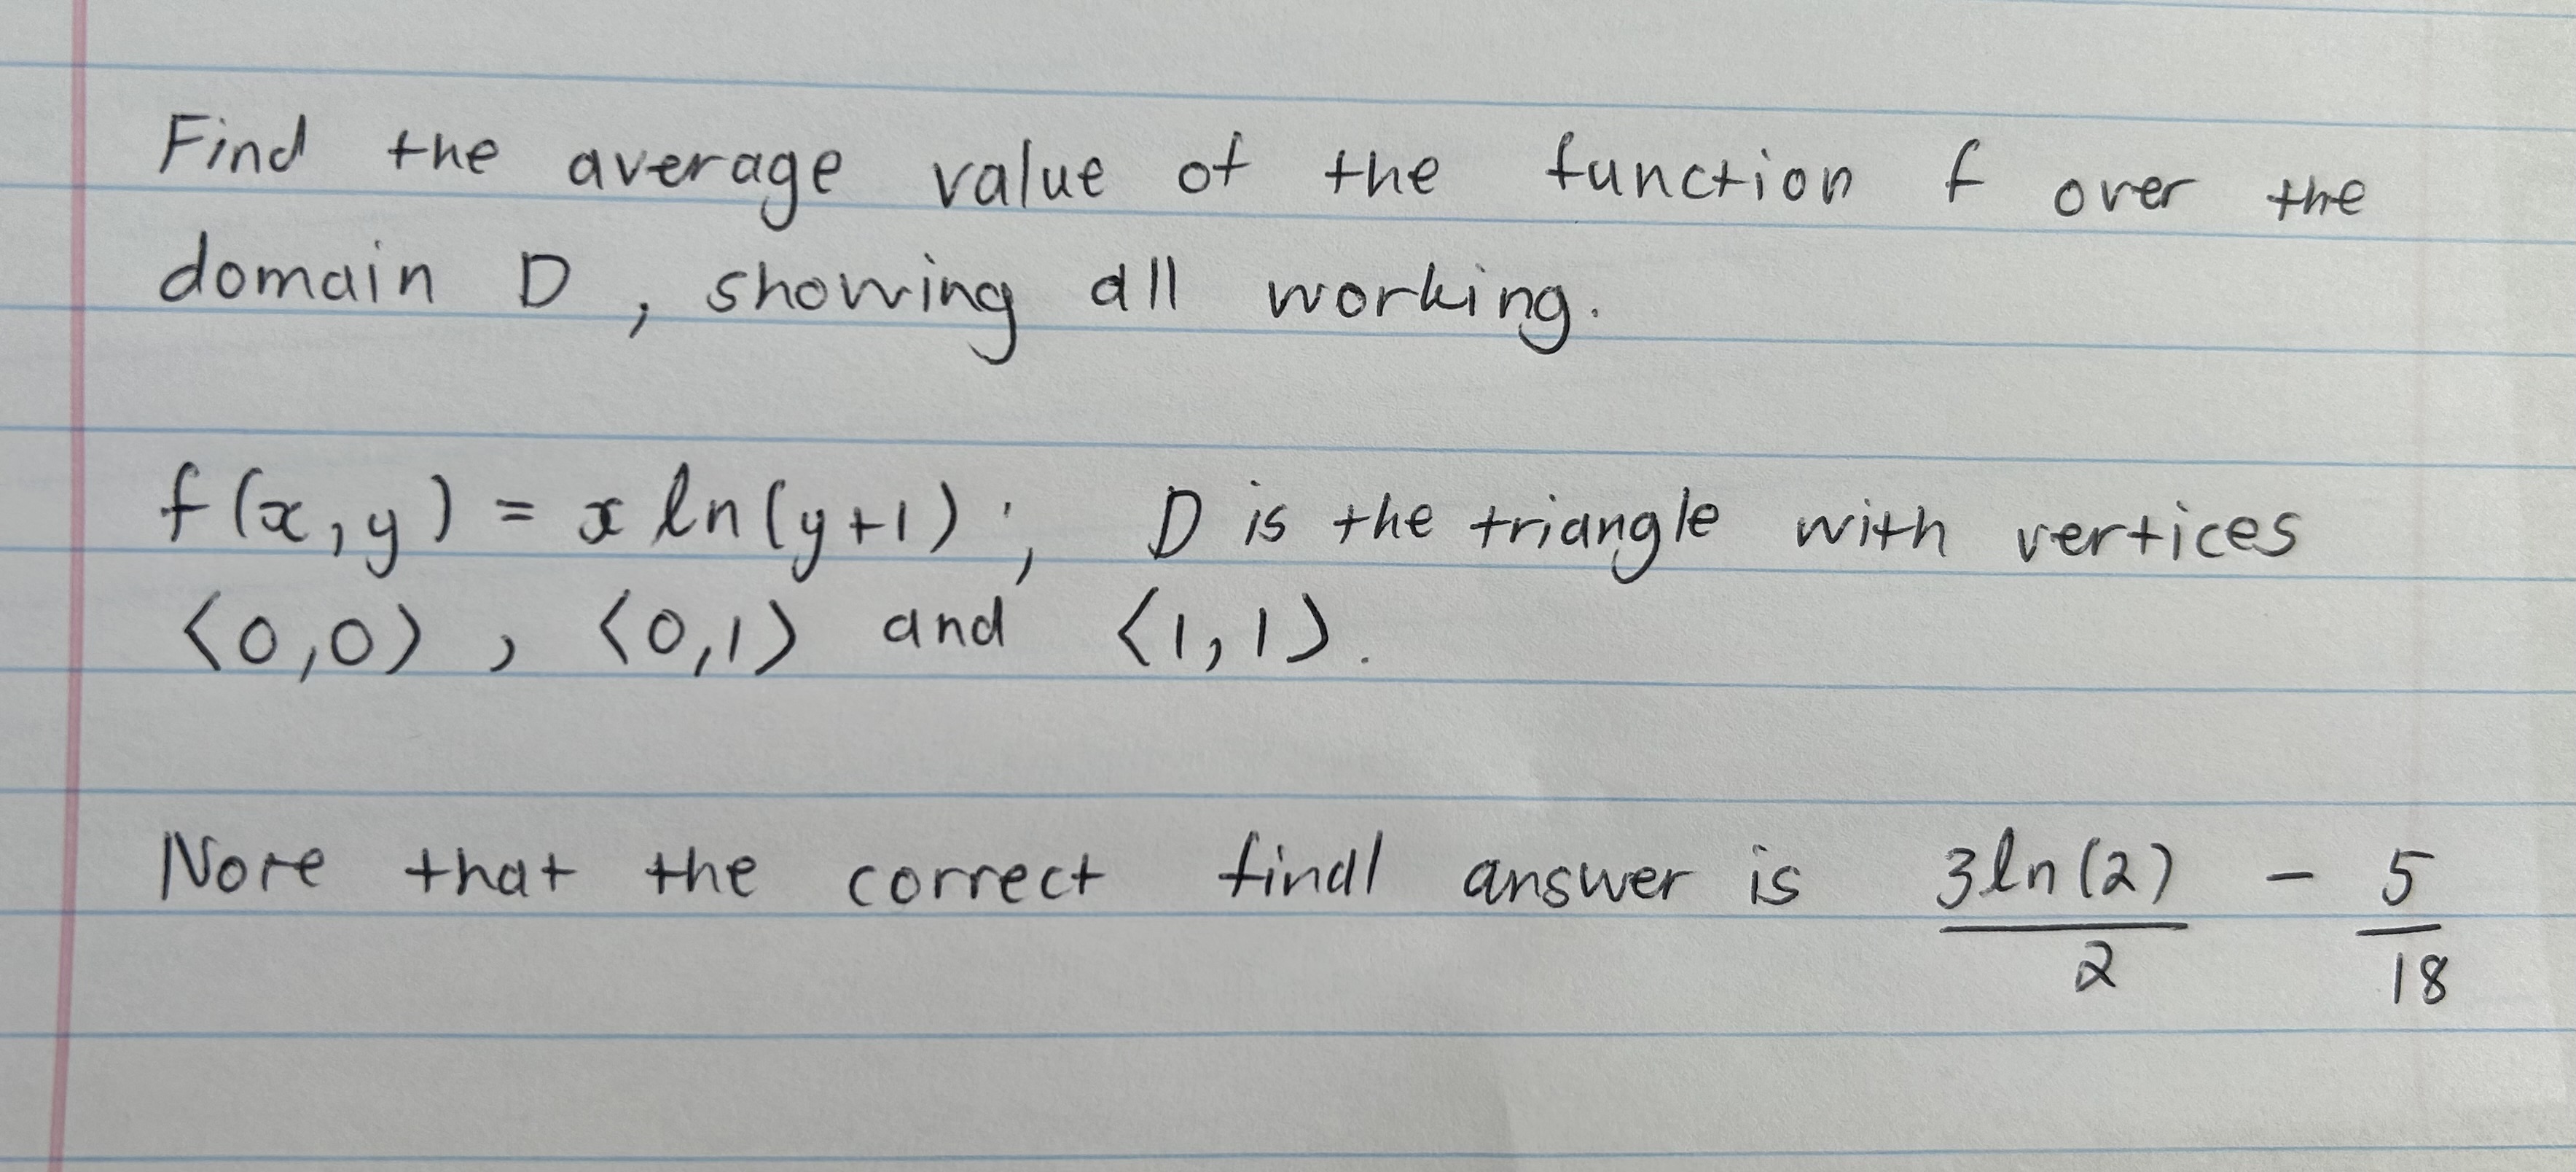 Find the average value of the function f over the
domain D, showing all working.
f(x,y) = x ln(y+1); D is the triangle with vertices
⟨0,0⟩, ⟨0,1⟩ and ⟨1,1⟩.
Note that the correct final answer is 3ln(2)/2 - 5/18